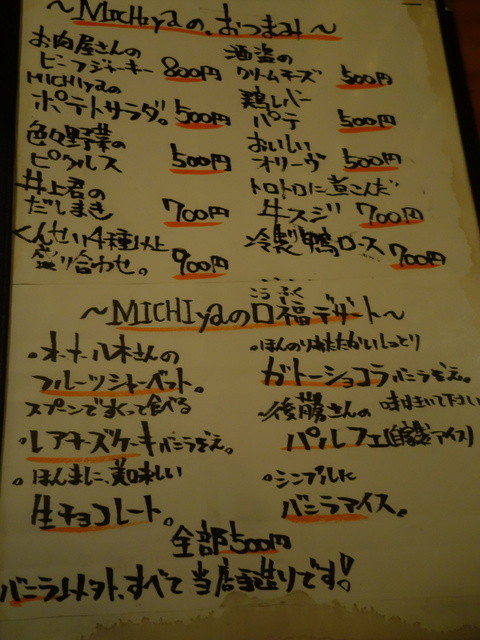 ～MICHIyaの、おつまみ～
お肉屋さんの
ビーフジャーキー 800円
MICHIyaの
ポテトサラダ。 500円
色々野菜の
ピクルス 500円
井上君の
だしまき 700円
くんせい4種以上
盛り合わせ。 900円
酒盗の
クリームチーズ 500円
鶏レバー
パテ 500円
おいしい
オリーヴ 500円
トロトロに煮こんだ
牛スジ 700円
冷製鴨ロース 700円
～MICHIyaの口福デザート～
こうふく
。オーナー鈴木さんの
フルーツシャーベット。
スプーンですくって食べる
。レアチーズケーキバニラぞえ。
。ほんまに、美味しい
生チョコレート。
。ほんのりあたたかいしっとり
ガトーショコラバニラぞえ。
。後藤さんの
パルフェ(自家製アイス)
。シンプルに
バニラアイス。
全部500円
すべて当店手造りです!